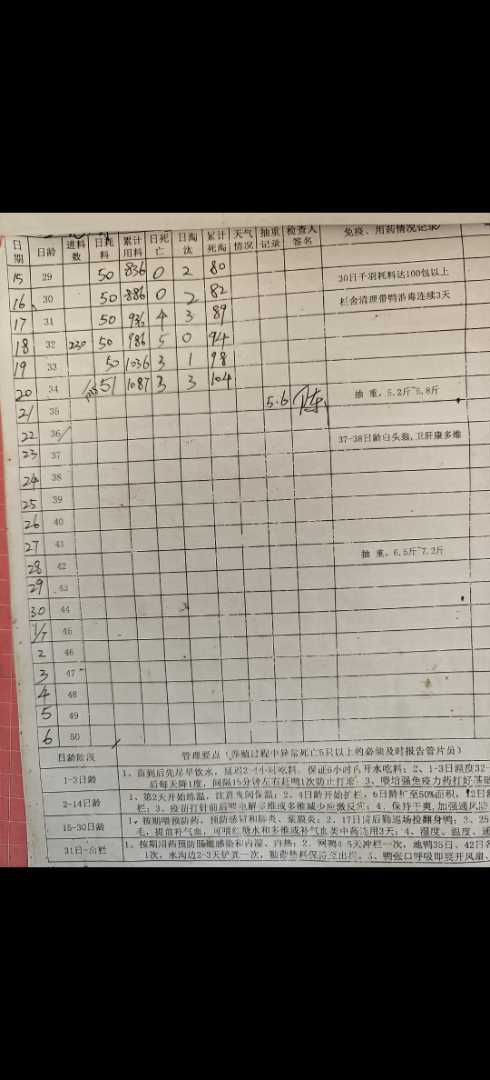 日期 日龄 进料数 日耗料 累计用料 日死亡 日淘汰 累计死淘 天气情况 抽重记录 检查人签名 免疫、用药情况记录
15 29 50 836 0 2 80 30日千羽耗料达100包以上
16 30 50 886 0 2 82 栏舍清理带鸭消毒连续3天
17 31 50 936 4 3 89
18 32 230 50 986 5 0 94
19 33 50 1036 3 1 98
20 34 51 1087 3 3 104
21 35 5.6 陈 抽 重，5.2斤~5.8斤
22 36
23 37 37-38日龄白头翁,卫肝康多维
24 38
25 39
26 40
27 41
28 42 抽 重，6.5斤~7.2斤
29 43
30 44
1/7 45
2 46
3 47
4 48
5 49
6 50
日龄阶段 管理要点（养殖过程中异常死亡5只以上的必须及时报告管片员）
1-3日龄 1、苗到后先尽早饮水，延迟2-4小时吃料，保证6小时内开水吃料；2、1-3日温度32-
后每天降1度，间隔15分钟左右赶鸭1次防止打堆 3、喂培强免疫力药打好基础
2-14日龄 1、第2天开始炼温，注意夜间保温；2、4日龄开始扩栏，6日龄扩至50%面积，12日龄
栏；3、疫苗打针前后喂电解多维或多维减少应激反应；4、保持干爽,加强通风
15-30日龄 1、按期喂预防药，预防感冒和肺炎、浆膜炎；2、17日龄后勤巡场捡翻身鸭；3、25
毛，提前补气血，可喂红糖水和多维或补气血类中药连用3天；4、湿度、温度、通
31日-出栏 1、按期用药预防肠雏感染和内湿、内热；2、网鸭4-5天冲栏一次，地鸭35日、42日各
1次，水沟边2-3天铲粪一次，勤垫垫料保持至出栏，3、鸭张口呼吸即要开风扇、